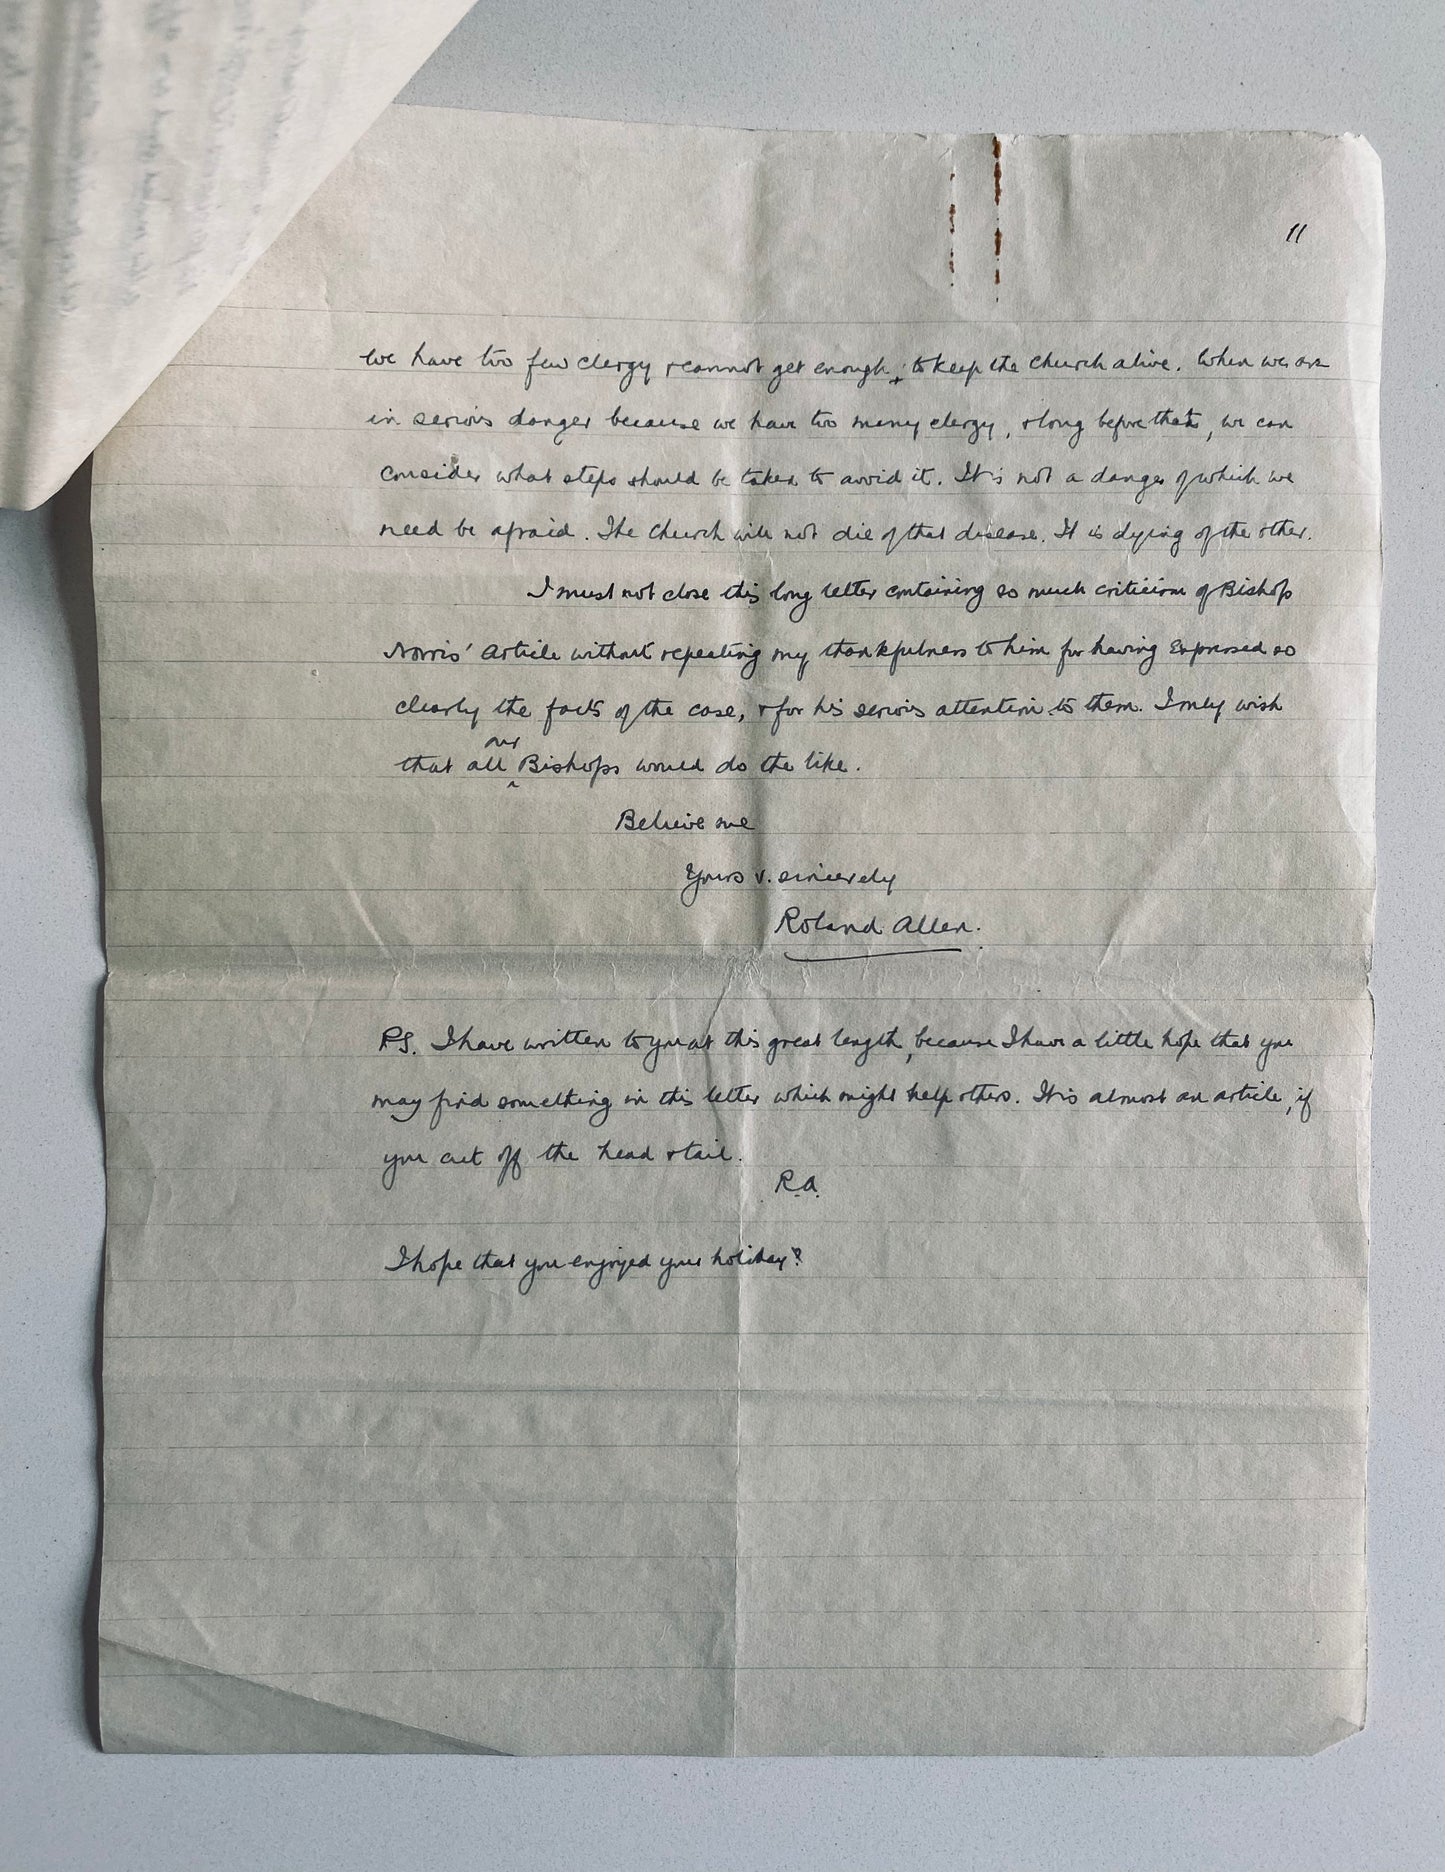 11
We have too few clergy & cannot get enough, to keep the church alive. When we are
in serious danger because we have too many clergy, & long before that, we can
consider what steps should be taken to avoid it. It is not a danger of which we
need be afraid. The church will not die of that disease. It is dying of the other.
I must not close this long letter containing so much criticism of Bishop
Norris' article without repeating my thankfulness to him for having expressed so
clearly the facts of the case, & for his serious attention to them. I only wish
that all our Bishops would do the like.
Believe me
Yours v. sincerely
Roland Allen.
P.S. I have written to you at this great length, because I have a little hope that you
may find something in this letter which might help others. It is almost an article, if
you cut off the head & tail.
R.A.
I hope that you enjoyed your holiday?